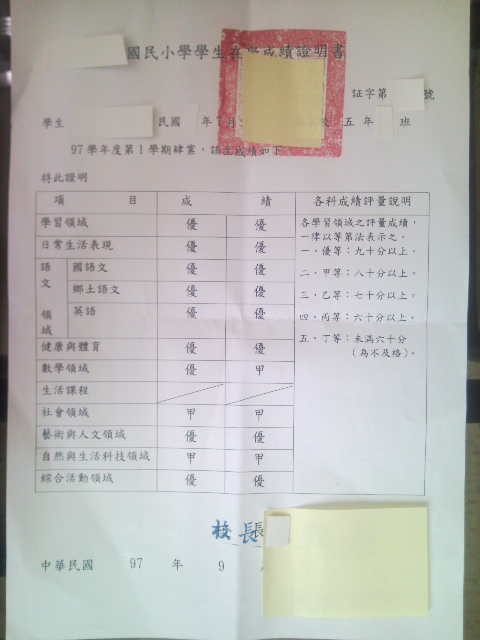 國民小學學生在學成績證明書
證字第 號
學生 民國 年7月 五年 班
97學年度第1學期肄業，該生成績如下
特此證明
項 目 成 績 各科成績評量說明
學習領域 優 優
日常生活表現 優 優
語文領域 國語文 優 優
鄉土語文 優 優
英語 優 優
健康與體育 優 優
數學領域 優 甲
生活課程
社會領域 甲 甲
藝術與人文領域 優 優
自然與生活科技領域 甲 甲
綜合活動領域 優 優
各學習領域之評量成績，
一律以等第法表示之。
一、優等：九十分以上。
二、甲等：八十分以上。
三、乙等：七十分以上。
四、丙等：六十分以上。
五、丁等：未滿六十分
（為不及格）。
校長
長
中華民國 97 年 9